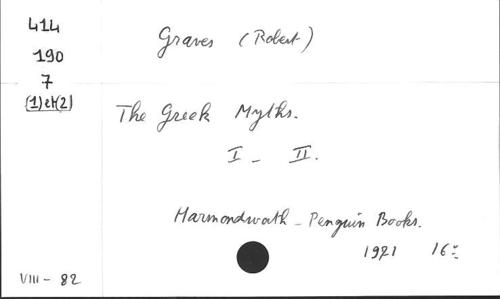 414
190
7
(1)et(2)
Graves (Robert)
The Greek Myths.
I - II.
Harmondwath - Penguin Books.
1971 16°
VIII - 82